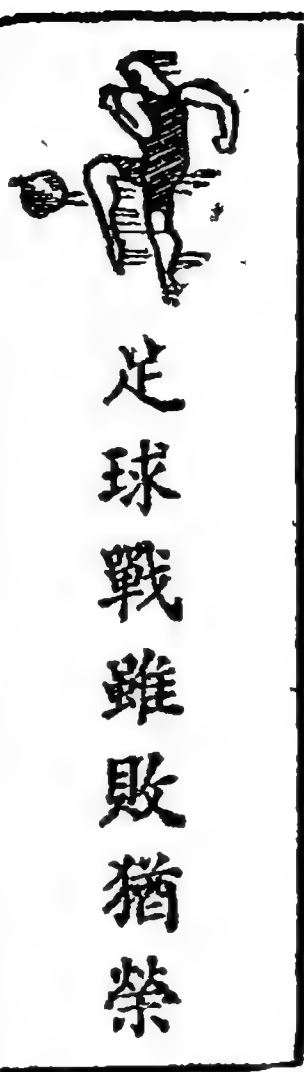 足球戰雖敗猶榮